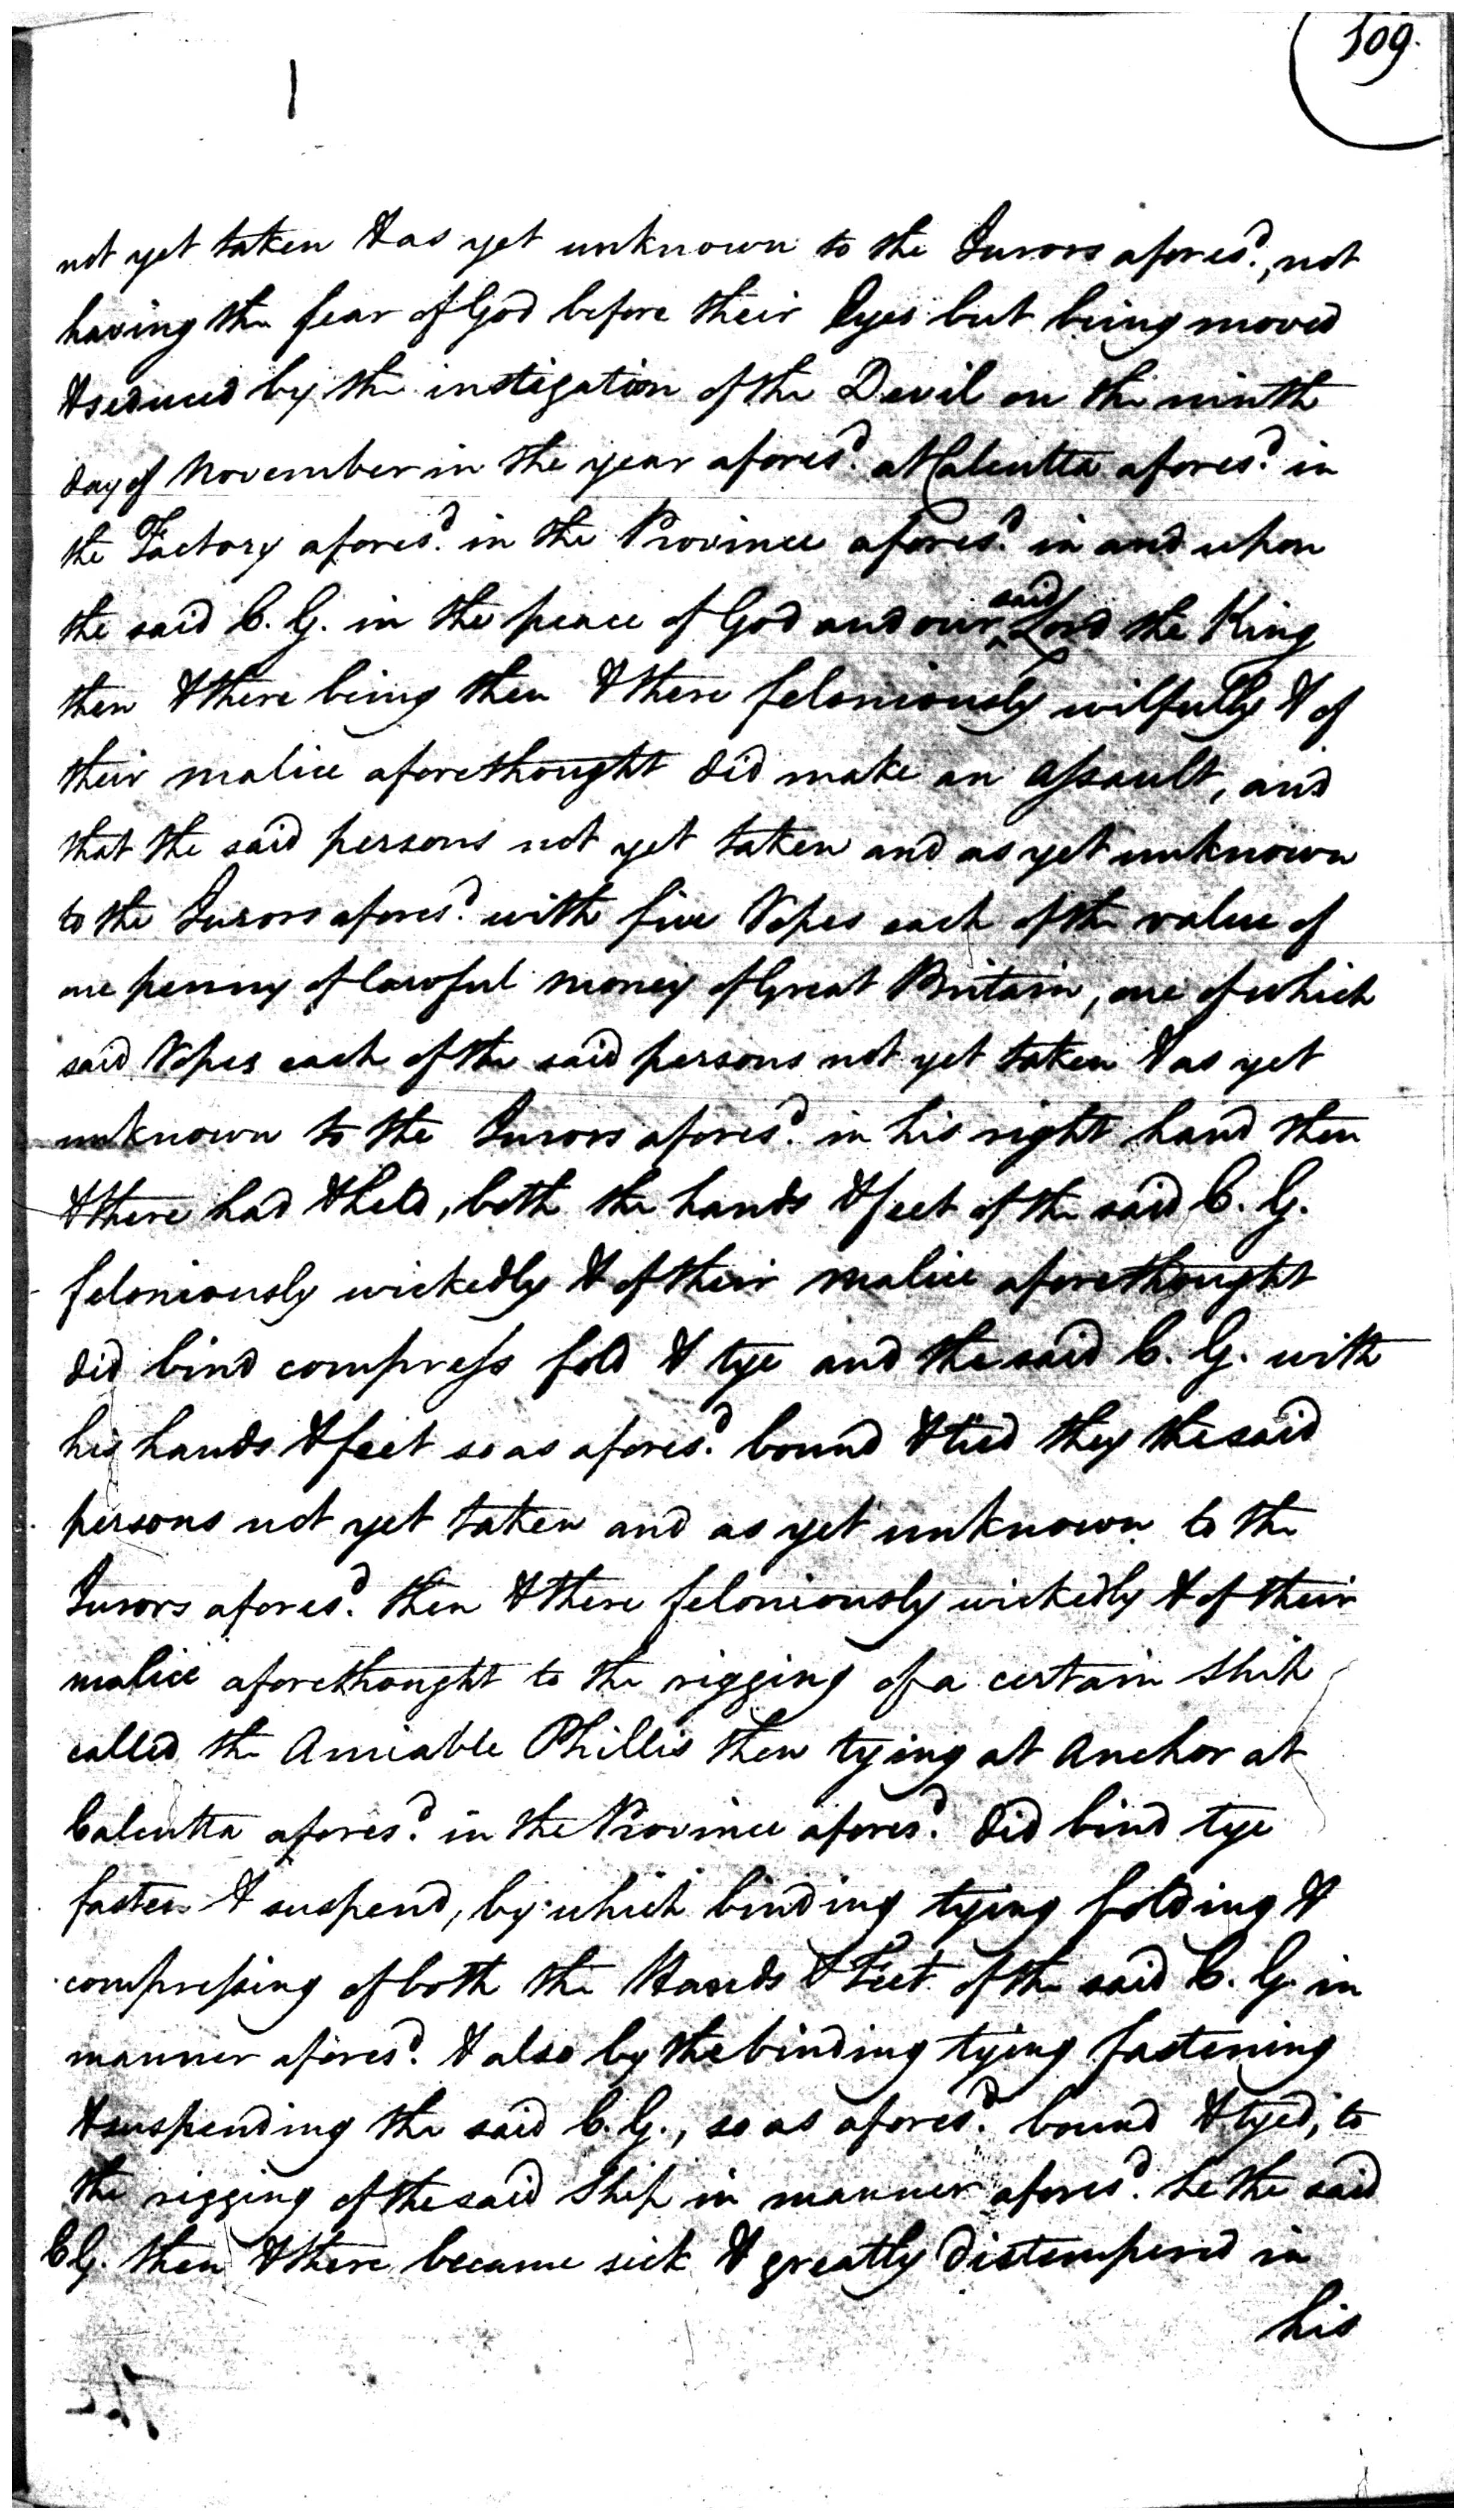 109.
not yet taken & as yet unknown to the Jurors afores.d, not
having the fear of God before their Eyes but being moved
& seduced by the instigation of the Devil on the ninth
day of November in the year afores.d at Calcutta afores.d in
the Factory afores.d in the Province afores.d in and upon
the said C. G. in the peace of God and our ^said Lord the King
then & there being then & there feloniously wilfully & of
their malice aforethought did make an assault, and
that the said persons not yet taken and as yet unknown
to the Jurors afores.d with five Ropes each of the value of
one penny of lawful money of Great Britain, one of which
said Ropes each of the said persons not yet taken & as yet
unknown to the Jurors afores.d in his right hand then
& there had & held, both the hands & feet of the said C. G.
feloniously wickedly & of their malice aforethought
did bind compress fold & tye and the said C. G. with
his hands & feet so as afores.d bound & tied they the said
persons not yet taken and as yet unknown to the
Jurors afores.d then & there feloniously wickedly & of their
malice aforethought to the rigging of a certain Ship
called the Amiable Phillis then lying at Anchor at
Calcutta afores.d in the Province afores.d did bind tye
fasten & suspend, by which binding tying folding &
compressing of both the Hands & Feet of the said C. G. in
manner afores.d & also by the binding tying fastening
& suspending the said C. G., so as afores.d bound & tyed, to
the rigging of the said Ship in manner afores.d he the said
C G. then & there became sick & greatly distempered in
his